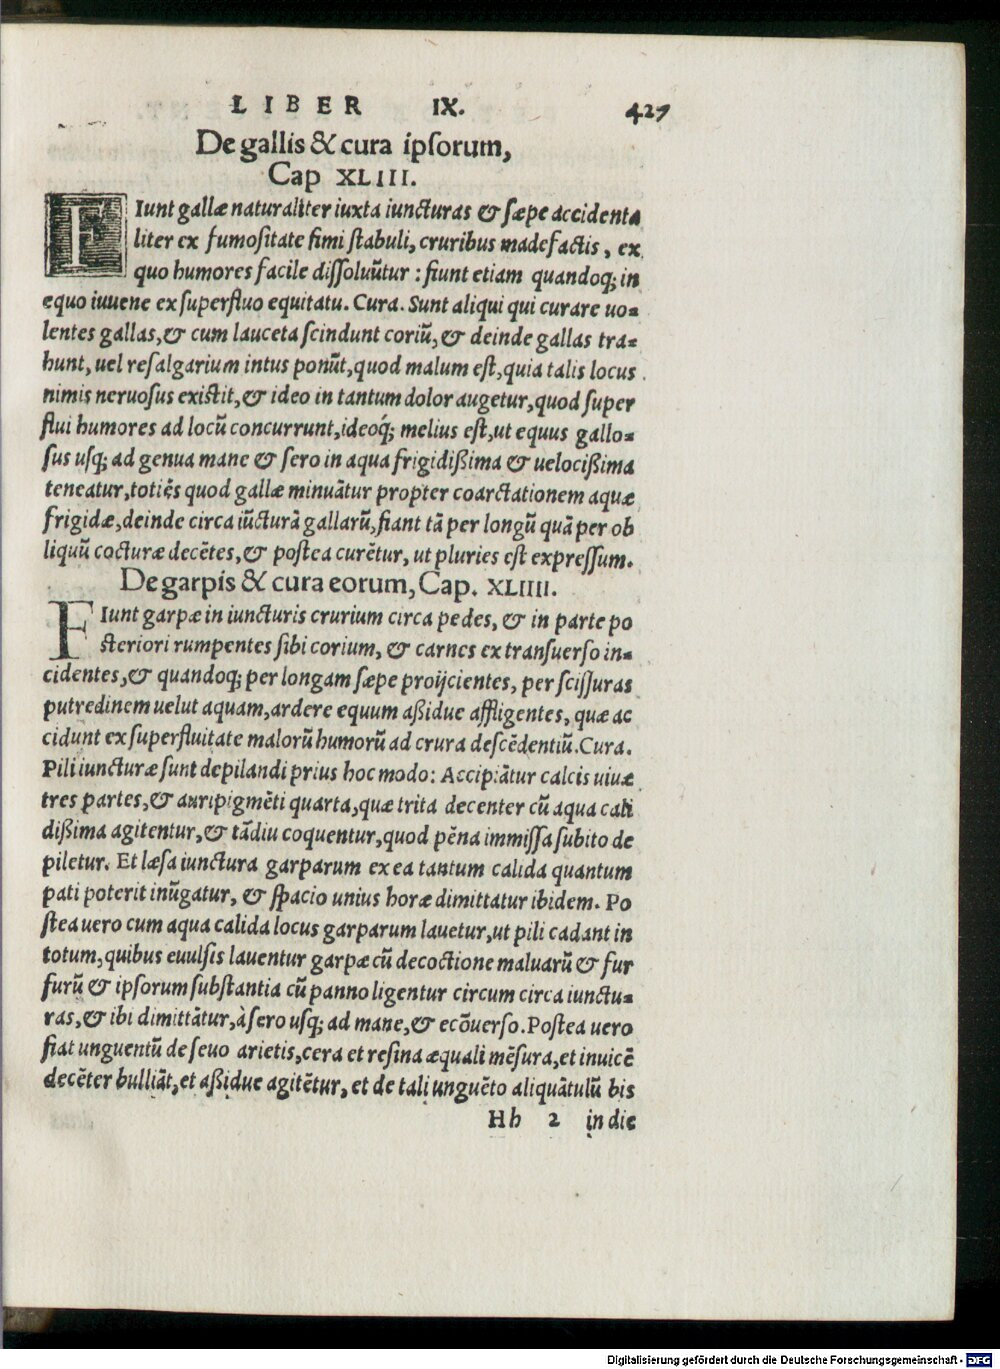 LIBER IX. 427
De gallis & cura ipsorum,
Cap XLIII.
FIunt gallæ naturaliter iuxta iuncturas & sæpe accidenta
liter ex fumositate fimi stabuli, cruribus madefactis, ex
quo humores facile dissoluũtur : fiunt etiam quandoq; in
equo iuuene ex superfluo equitatu. Cura. Sunt aliqui qui curare uo=
lentes gallas,& cum lauceta scindunt coriũ,& deinde gallas tra=
hunt, uel resalgarium intus ponũt,quod malum est,quia talis locus
nimis neruosus existit,& ideo in tantum dolor augetur,quod super
flui humores ad locũ concurrunt,ideoq́; melius est,ut equus gallo=
sus usq; ad genua mane & sero in aqua frigidißima & uelocißima
teneatur,totiẽs quod gallæ minuãtur propter coarctationem aquæ
frigidæ,deinde circa iũcturã gallarũ,fiant tã per longũ quã per ob
liquũ cocturæ decẽtes,& postea curẽtur, ut pluries est expressum.
De garpis & cura eorum, Cap. XLIIII.
FIunt garpæ in iuncturis crurium circa pedes, & in parte po
steriori rumpentes sibi corium, & carnes ex transuerso in=
cidentes,& quandoq; per longam sæpe proijcientes, per scissuras
putredinem uelut aquam,ardere equum aßidue affligentes, quæ ac
cidunt ex superfluitate malorũ humorũ ad crura descẽdentiũ.Cura.
Pili iuncturæ sunt depilandi prius hoc modo: Accipiãtur calcis uiuæ
tres partes,& auripigmẽti quarta,quæ trita decenter cũ aqua cali
dißima agitentur,& tãdiu coquentur,quod pẽna immissa subito de
piletur. Et læsa iunctura garparum ex ea tantum calida quantum
pati poterit inũgatur, & spacio unius horæ dimittatur ibidem. Po
stea uero cum aqua calida locus garparum lauetur,ut pili cadant in
totum,quibus euulsis lauentur garpæ cũ decoctione maluarũ & fur
furũ & ipsorum substantia cũ panno ligentur circum circa iunctu=
ras,& ibi dimittãtur,à sero usq; ad mane,& ecõuerso.Postea uero
fiat unguentũ de seuo arietis,cera et resina æquali mẽsura,et inuicẽ
decẽter bulliãt,et aßidue agitẽtur, et de tali unguẽto aliquãtulũ bis
Hh 2 in die
Digitalisierung gefördert durch die Deutsche Forschungsgemeinschaft - DFG